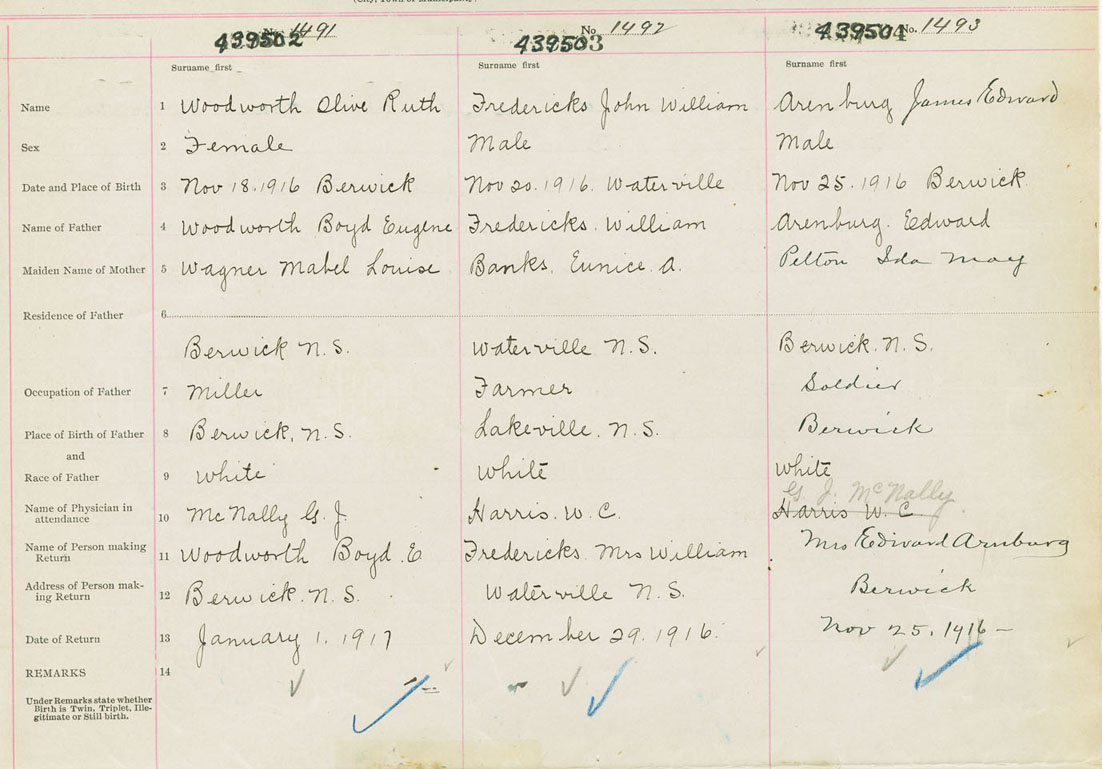 (City, Town or Municipality)
No 1491 No 1492 No. 1493
439502 439503 439504
Surname first Surname first Surname first
Name 1 Woodworth Olive Ruth Fredericks John William Arenburg James Edward
Sex 2 Female Male Male
Date and Place of Birth 3 Nov 18.1916 Berwick Nov 20.1916. Waterville Nov 25.1916 Berwick
Name of Father 4 Woodworth Boyd Eugene Fredericks. William Arenburg. Edward
Maiden Name of Mother 5 Wagner Mabel Louise Banks. Eunice. A. Pelton Ida May
Residence of Father 6
Berwick N.S. Waterville N.S. Berwick. N.S.
Occupation of Father 7 Miller Farmer Soldier
Place of Birth of Father 8 Berwick, N.S. Lakeville. N.S. Berwick
and
Race of Father 9 White White White
G. J. McNally.
Name of Physician in
attendance 10 McNally G. J. Harris. W. C. Harris W. C.
Name of Person making
Return 11 Woodworth Boyd. E Fredericks. Mrs William Mrs Edward Arnburg
Address of Person mak-
ing Return 12 Berwick. N.S. Waterville N.S. Berwick
Date of Return 13 January 1. 1917 December 29. 1916. Nov 25. 1916 –
REMARKS 14
Under Remarks state whether
Birth is Twin, Triplet, Ille-
gitimate or Still birth.